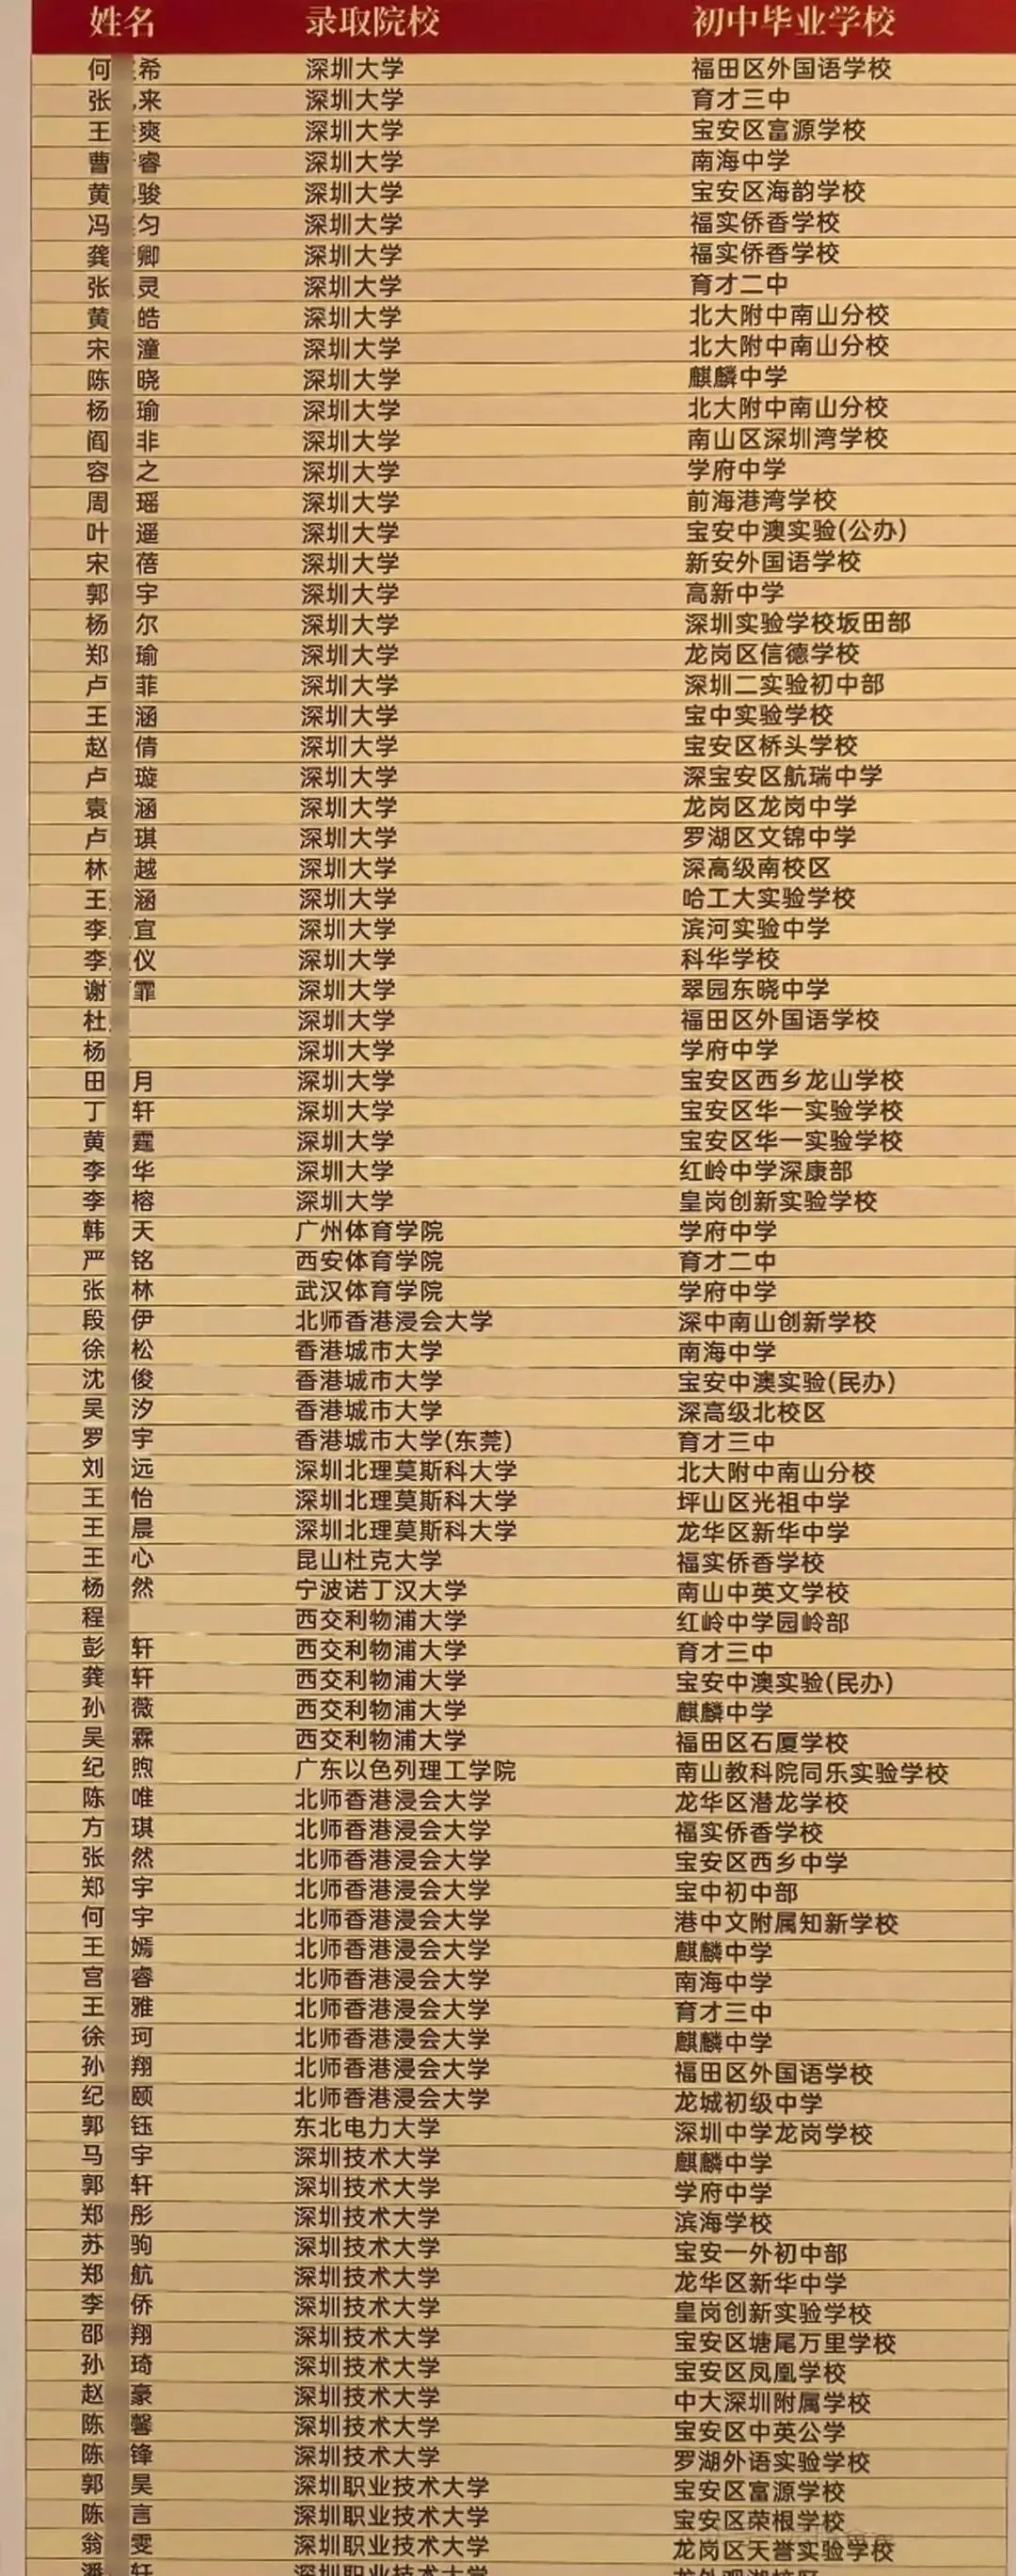 姓名 录取院校 初中毕业学校
何 希 深圳大学 福田区外国语学校
张 来 深圳大学 育才三中
王 爽 深圳大学 宝安区富源学校
曹 睿 深圳大学 南海中学
黄 骏 深圳大学 宝安区海韵学校
冯 匀 深圳大学 福实侨香学校
龚 卿 深圳大学 福实侨香学校
张 灵 深圳大学 育才二中
黄 皓 深圳大学 北大附中南山分校
宋 潼 深圳大学 北大附中南山分校
陈 晓 深圳大学 麒麟中学
杨 瑜 深圳大学 北大附中南山分校
阎 非 深圳大学 南山区深圳湾学校
容 之 深圳大学 学府中学
周 瑶 深圳大学 前海港湾学校
叶 遥 深圳大学 宝安中澳实验(公办)
宋 蓓 深圳大学 新安外国语学校
郭 宇 深圳大学 高新中学
杨 尔 深圳大学 深圳实验学校坂田部
郑 瑜 深圳大学 龙岗区信德学校
卢 菲 深圳大学 深圳二实验初中部
王 涵 深圳大学 宝中实验学校
赵 倩 深圳大学 宝安区桥头学校
卢 璇 深圳大学 深宝安区航瑞中学
袁 涵 深圳大学 龙岗区龙岗中学
卢 琪 深圳大学 罗湖区文锦中学
林 越 深圳大学 深高级南校区
王 涵 深圳大学 哈工大实验学校
李 宜 深圳大学 滨河实验中学
李 仪 深圳大学 科华学校
谢 霏 深圳大学 翠园东晓中学
杜 深圳大学 福田区外国语学校
杨 深圳大学 学府中学
田 月 深圳大学 宝安区西乡龙山学校
丁 轩 深圳大学 宝安区华一实验学校
黄 霆 深圳大学 宝安区华一实验学校
李 华 深圳大学 红岭中学深康部
李 榕 深圳大学 皇岗创新实验学校
韩 天 广州体育学院 学府中学
严 铭 西安体育学院 育才二中
张 林 武汉体育学院 学府中学
段 伊 北师香港浸会大学 深中南山创新学校
徐 松 香港城市大学 南海中学
沈 俊 香港城市大学 宝安中澳实验(民办)
吴 汐 香港城市大学 深高级北校区
罗 宇 香港城市大学(东莞) 育才三中
刘 远 深圳北理莫斯科大学 北大附中南山分校
王 怡 深圳北理莫斯科大学 坪山区光祖中学
王 晨 深圳北理莫斯科大学 龙华区新华中学
王 心 昆山杜克大学 福实侨香学校
杨 然 宁波诺丁汉大学 南山中英文学校
程 西交利物浦大学 红岭中学园岭部
彭 轩 西交利物浦大学 育才三中
龚 轩 西交利物浦大学 宝安中澳实验(民办)
孙 薇 西交利物浦大学 麒麟中学
吴 霖 西交利物浦大学 福田区石厦学校
纪 煦 广东以色列理工学院 南山教科院同乐实验学校
陈 唯 北师香港浸会大学 龙华区潜龙学校
方 琪 北师香港浸会大学 福实侨香学校
张 然 北师香港浸会大学 宝安区西乡中学
郑 宇 北师香港浸会大学 宝中初中部
何 宇 北师香港浸会大学 港中文附属知新学校
王 嫣 北师香港浸会大学 麒麟中学
宫 睿 北师香港浸会大学 南海中学
王 雅 北师香港浸会大学 育才三中
徐 珂 北师香港浸会大学 麒麟中学
孙 翔 北师香港浸会大学 福田区外国语学校
纪 颐 北师香港浸会大学 龙城初级中学
郭 钰 东北电力大学 深圳中学龙岗学校
马 宇 深圳技术大学 麒麟中学
郭 轩 深圳技术大学 学府中学
郑 彤 深圳技术大学 滨海学校
苏 驹 深圳技术大学 宝安一外初中部
郑 航 深圳技术大学 龙华区新华中学
李 侨 深圳技术大学 皇岗创新实验学校
邵 翔 深圳技术大学 宝安区塘尾万里学校
孙 琦 深圳技术大学 宝安区凤凰学校
赵 豪 深圳技术大学 中大深圳附属学校
陈 馨 深圳技术大学 宝安区中英公学
陈 锋 深圳技术大学 罗湖外语实验学校
郭 昊 深圳职业技术大学 宝安区富源学校
陈 言 深圳职业技术大学 宝安区荣根学校
翁 雯 深圳职业技术大学 龙岗区天誉实验学校
潘 轩 深圳职业技术大学